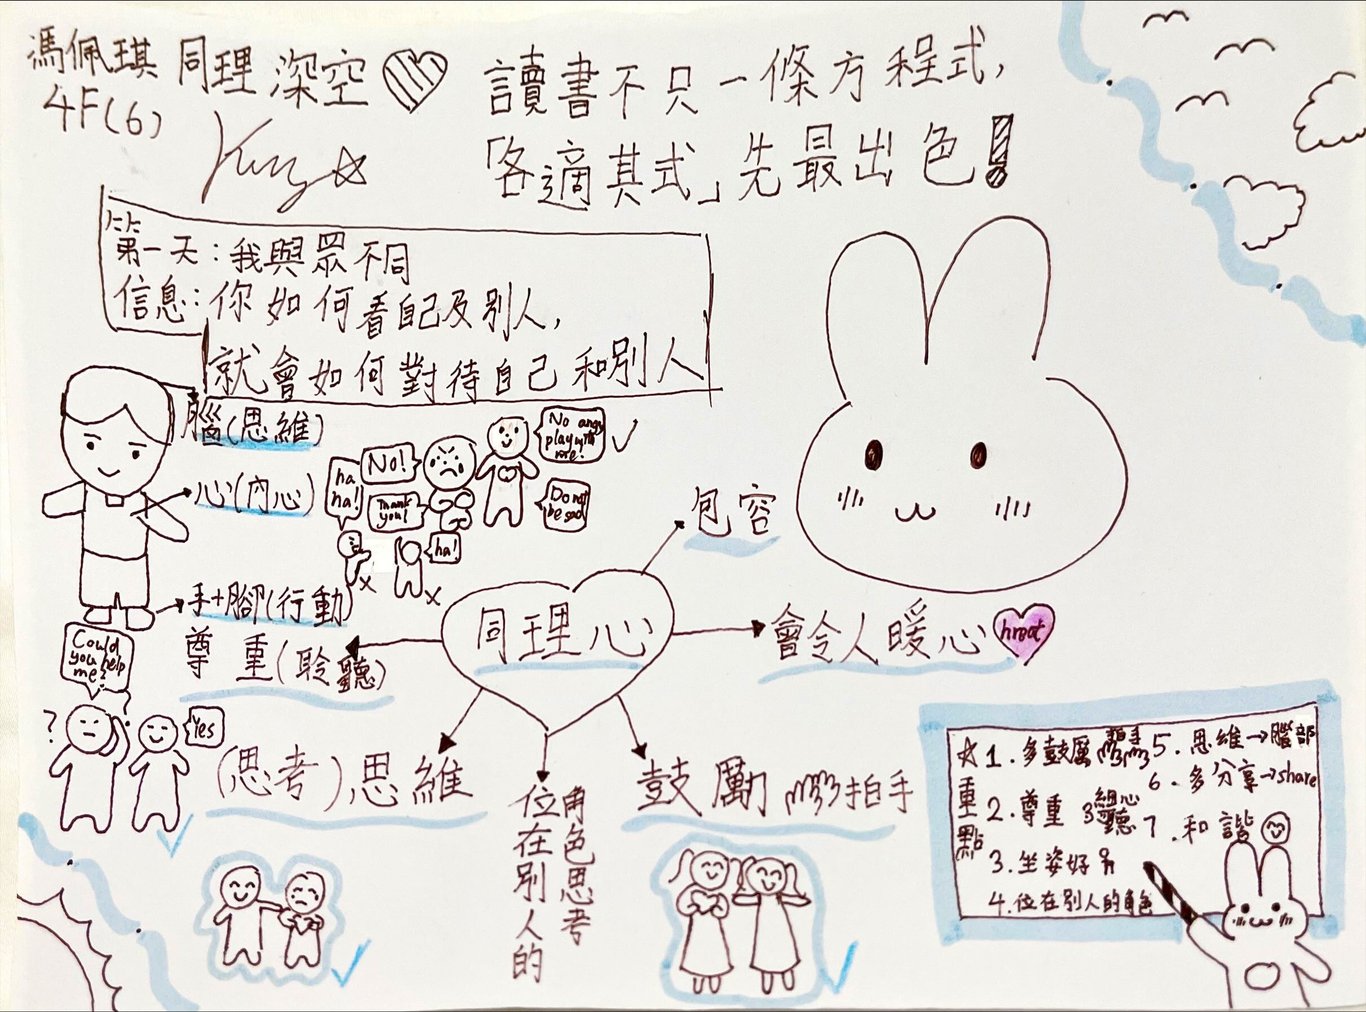 馮佩琪 同理深空
4F(6)
讀書不只一條方程式,
「各適其式」先最出色!
第一天：我與眾不同
信息：你如何看自己及別人,
就會如何對待自己和別人
腦(思維)
心(內心)
手+腳(行動)
No!
Thank you!
ha ha!
ha!
No angy play with me!
Do not be sad
包容
同理心
會令人暖心
hreat
尊重(聆聽)
Could you help me?
?
Yes
(思考)思維
位在別人的
角色思考
鼓勵 拍手
☆重點
1.多鼓勵 拍手
2.尊重 細心聽
3.坐姿好
4.位在別人的角色
5.思維→腦部
6.多分享→share
7.和諧